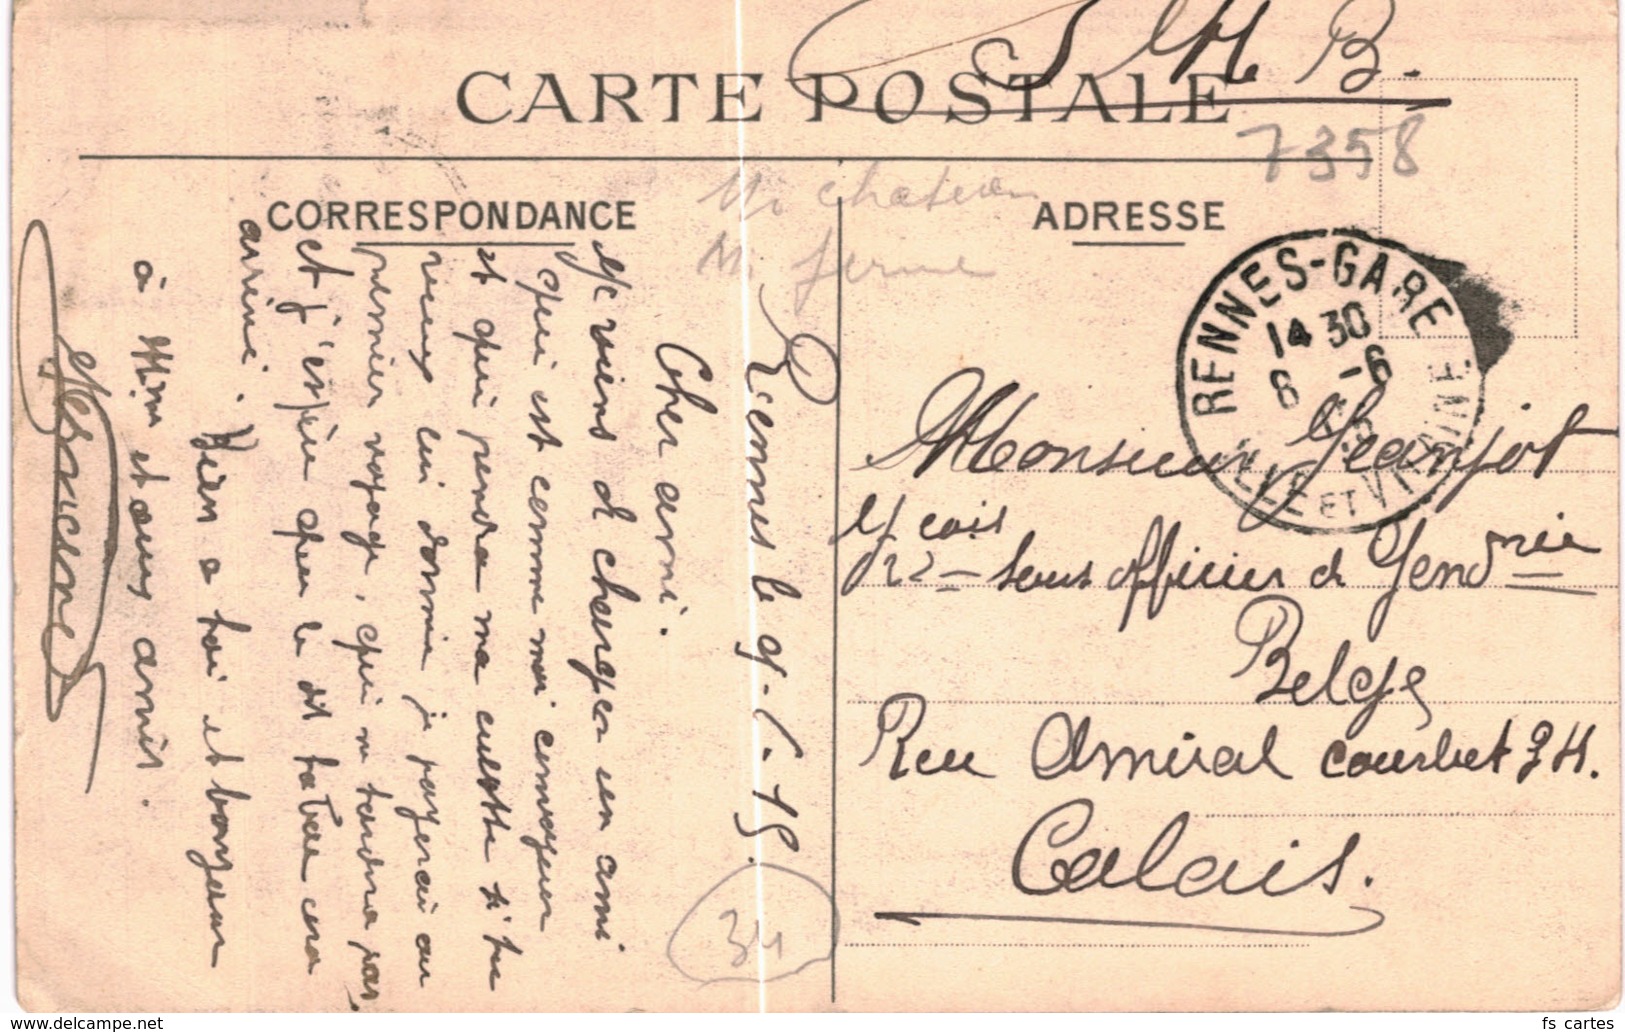 S. M. B.
CARTE POSTALE
7358
CORRESPONDANCE
ADRESSE
Mr chateau
Mr ferme
RENNES-GARE
14 30
8 -6
ILLE ET VILAINE
Rennes le 9.6.15.
Cher ami.
Je viens de charger un ami
qui est comme moi
et qui prendra ma culotte si tu
veux lui donner je payerai au
premier voyage, qui ne tardera pas.
et j'espère que le dit tabac sera
arrivé.
Bien a toi et bonjour
à Mme et aux amis.
Monsieur Jeanjot
Sous officier de Gendrie
Belge
Rue Amiral courbet 34.
Calais.
34
www.delcampe.net
fs_cartes